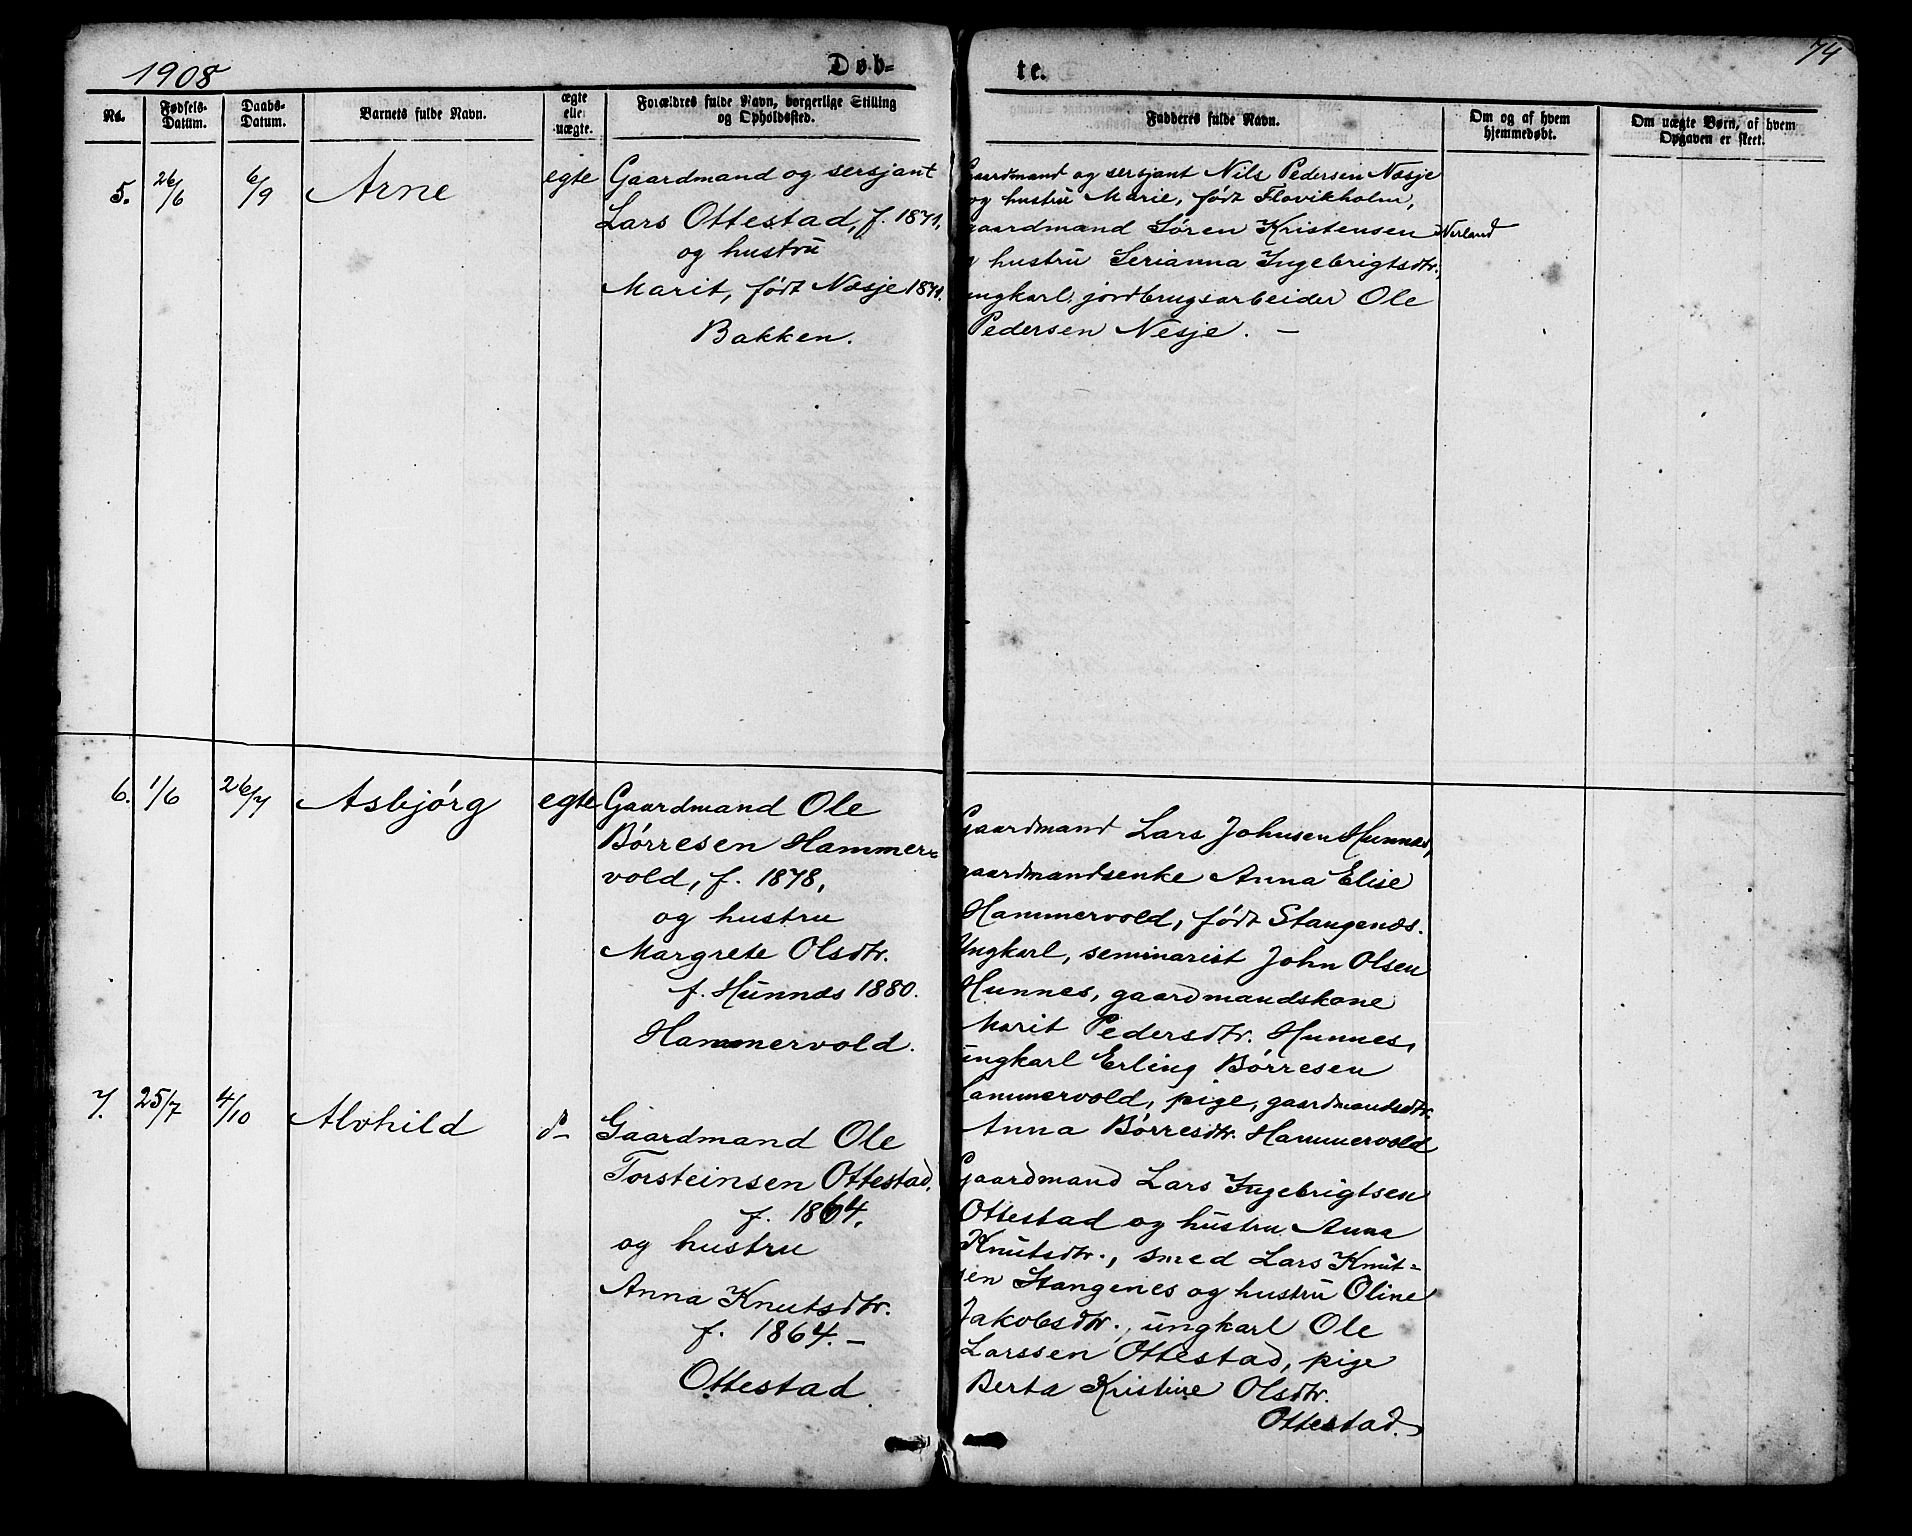 1908
Døb-
te.
74
No.
Fødsels-
Datum.
Daabs-
Datum.
Barnets fulde Navn.
ægte
elle
uægte.
Forældres fulde Navn, borgerlige Stilling
og Opholdssted.
Fadderes fulde Navn.
Om og af hvem
hjemmedøbt.
Om uægte Børn, af hvem
Opgaven er skeet.
5.
26/6
6/9
Arne
egte
Gaardmand og sersjant
Lars Ottestad, f. 1871,
og hustru
Marit, født Næsje 1871.
Bakken.
Gaardmand og sersjant Nils Pedersen Næsje
og hustru Marie, født Flovikholm,
gaardmand Søren Kristensen Nerland
hustru Serianna Ingebrigtsdtr.,
ungkarl jordbrugsarbeider Ole
Pedersen Nesje. —
6.
1/6
26/7
Asbjørg
egte
Gaardmand Ole
Børresen Hammer=
vold, f. 1878,
og hustru
Margrete Olsdtr.
f. Hunnæs 1880.
Hammervold.
Gaardmand Lars Johnsen Hunnæs,
gaardmandsenke Anna Elise
Hammervold, født Stangenæs.
Ungkarl, seminarist John Olsen
Hunnes, gaardmandskone
Marit Pedersdtr. Hunnes,
ungkarl Erling Børresen
Hammervold, pige, gaardmandsdtr.
Anna Børresdtr. Hammervold
7.
25/7
4/10
Alvhild
do
Gaardmand Ole
Torsteinsen Ottestad,
f. 1864,
og hustru
Anna Knutsdtr.
f. 1864. —
Ottestad
Gaardmand Lars Ingebrigtsen
Ottestad og hustru Anna
Knutsdtr., smed Lars Knut-
sen Stangenes og hustru Oline
Jakobsdtr., ungkarl Ole
Larssen Ottestad, pige
Berta Kristine Olsdtr.
Ottestad.